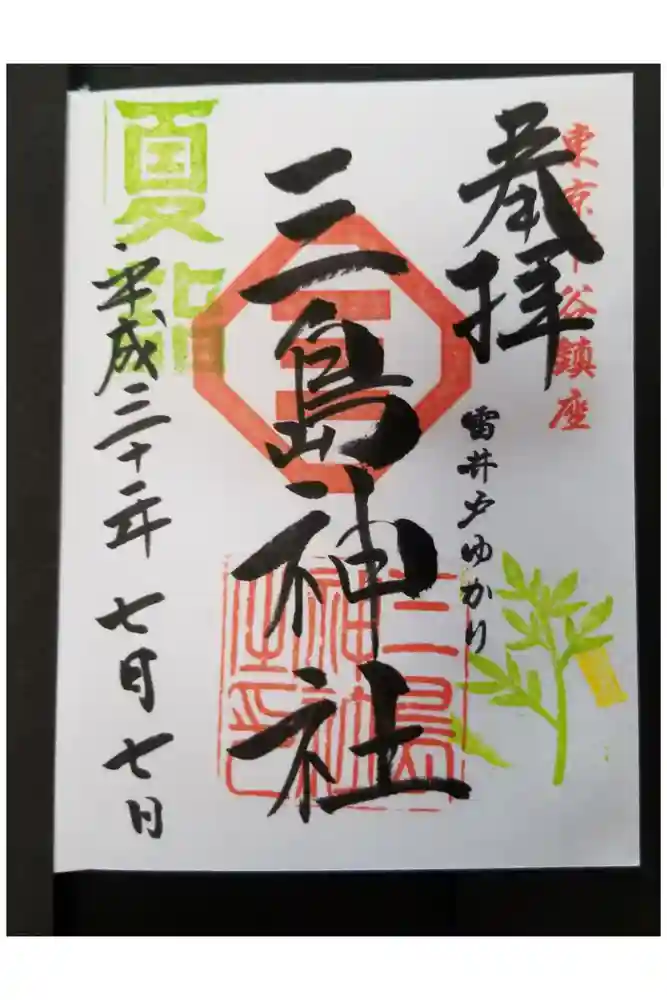 東京下谷鎮座
奉拝
雷井戸ゆかり
三島神社
三島神社之印
夏詣
平成三十年七月七日